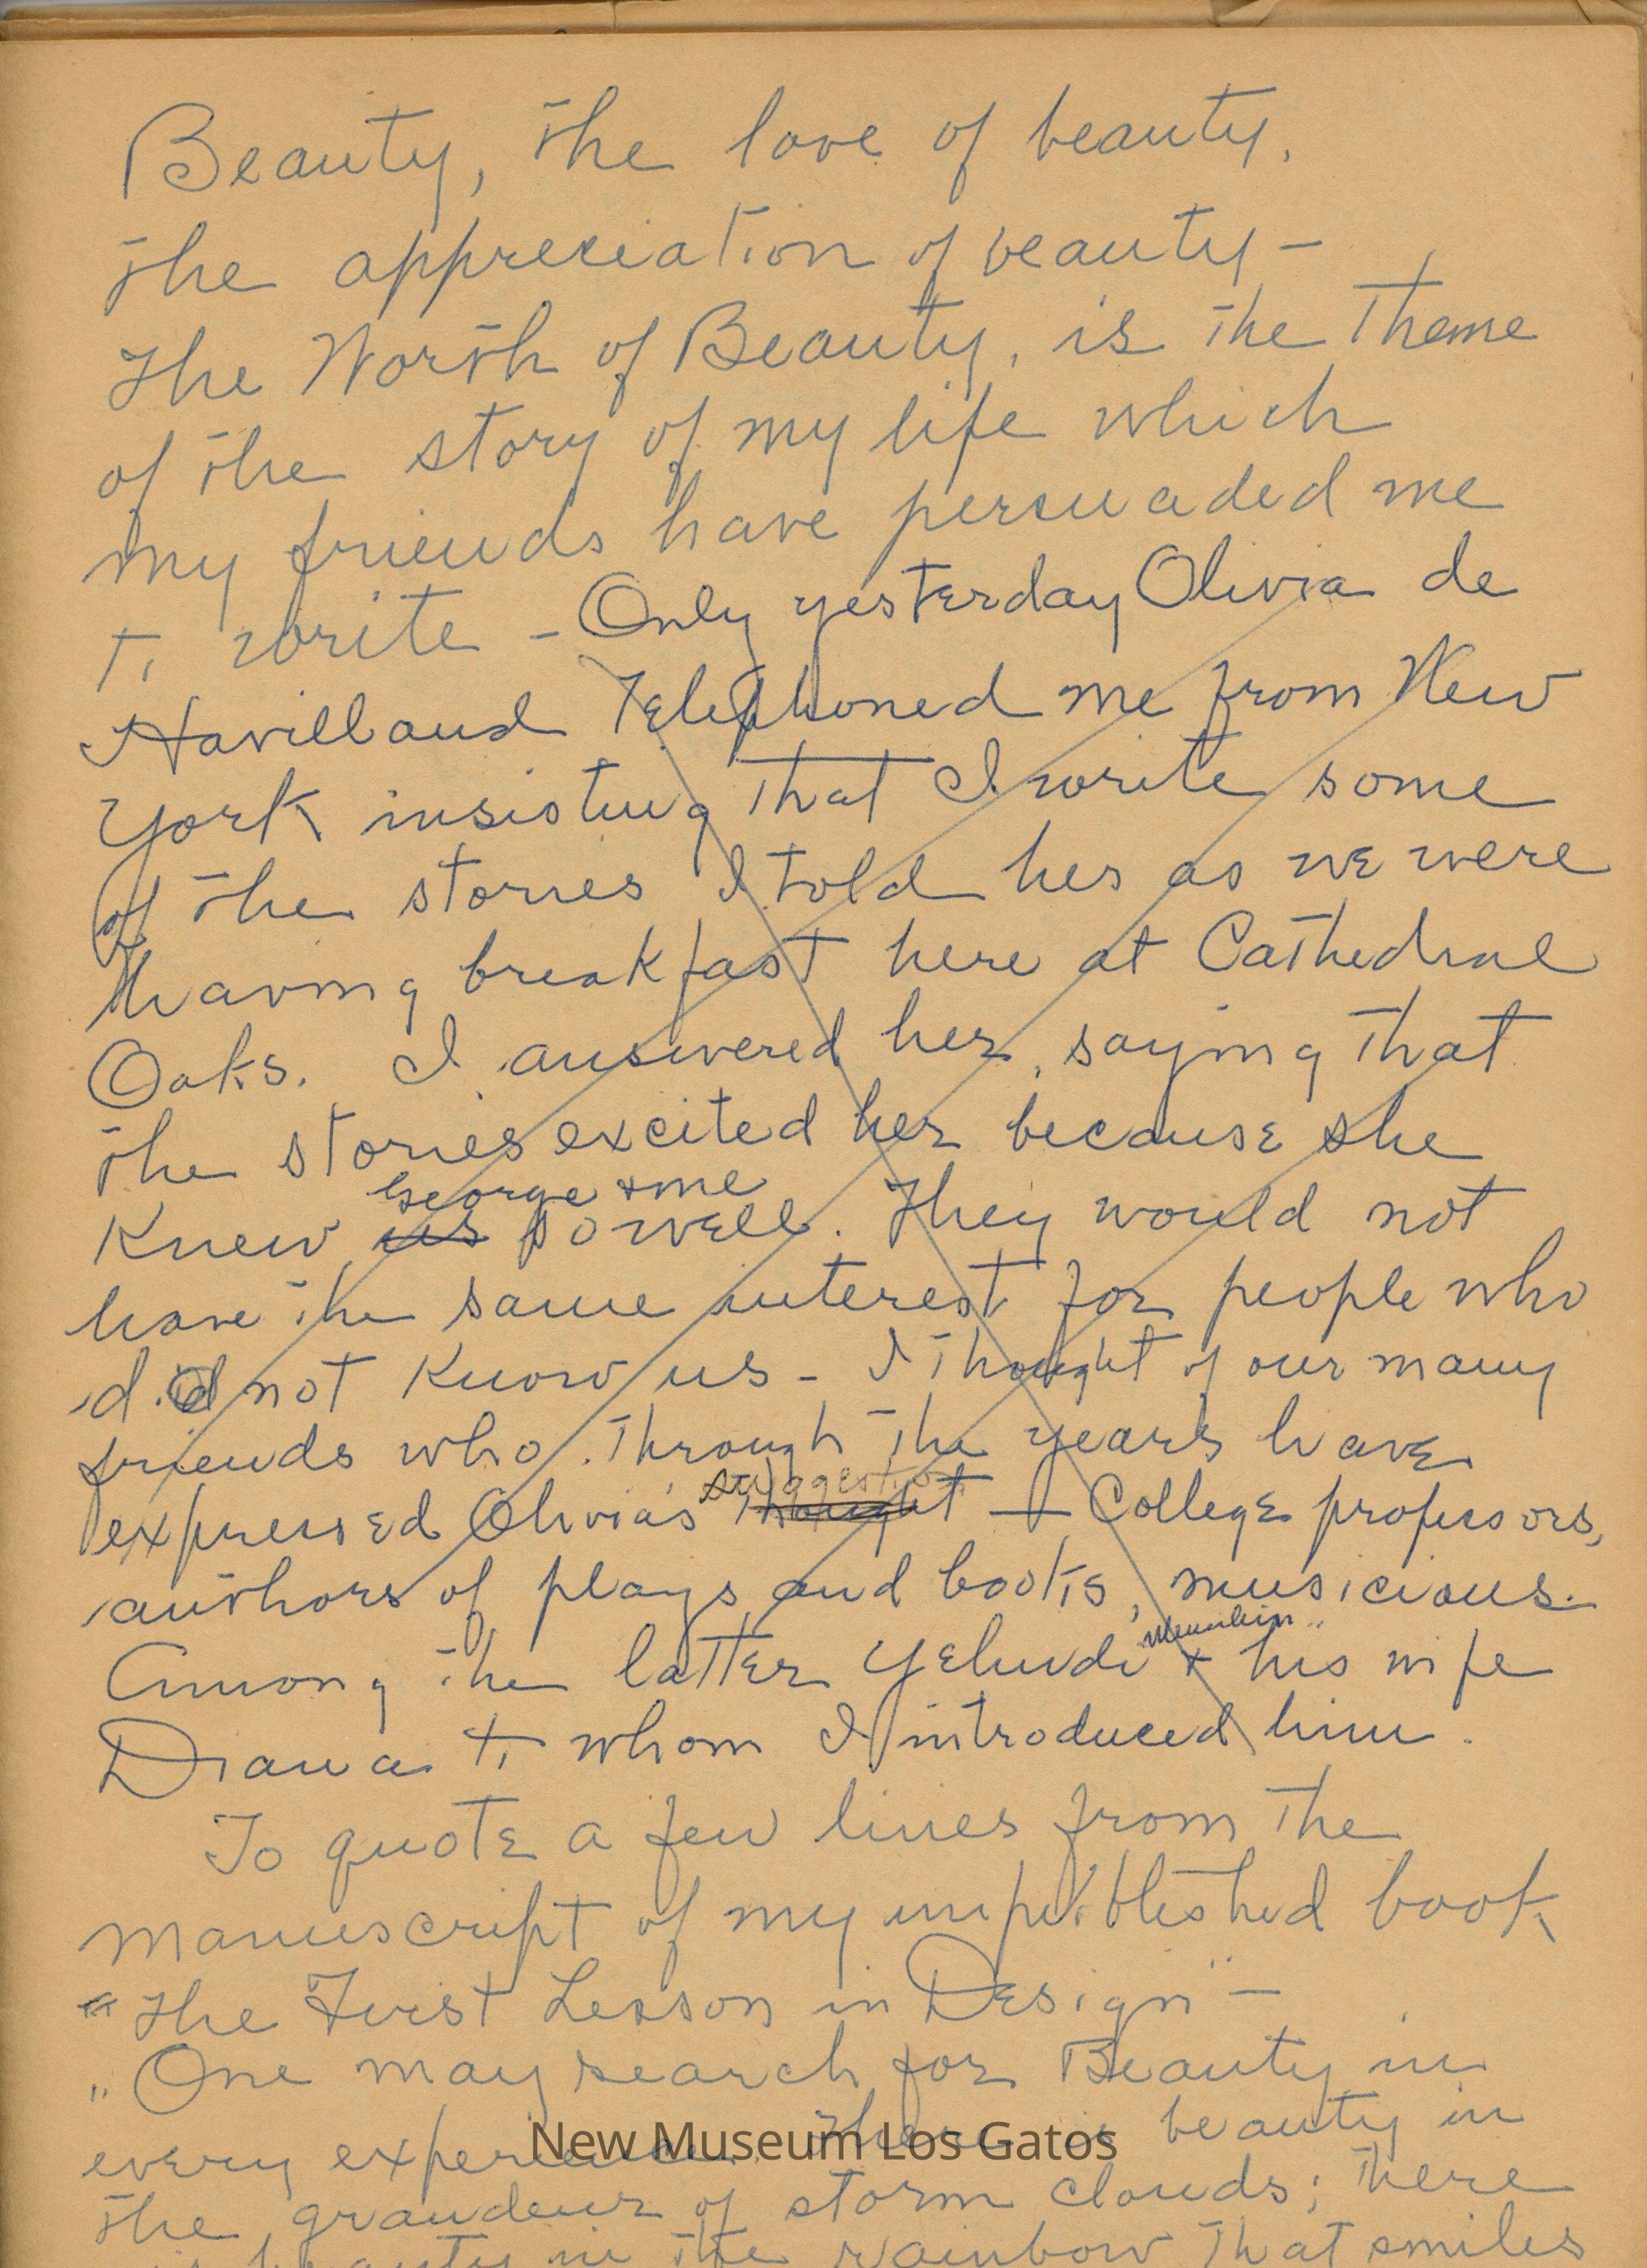 Beauty, the love of beauty,
the appreciation of beauty –
The Worth of Beauty, is the theme
of the story of my life which
my friends have persuaded me
to write – Only yesterday Olivia de
Havilland telephoned me from New
York insisting that I write some
of the stories I told her as we were
having breakfast here at Cathedral
Oaks. I answered her, saying that
the stories excited her because she
George + me
knew us so well. They would not
have the same interest for people who
did not know us – I thought of our many
friends who through the years have
suggestion
expressed Olivia's thought — College professors,
authors of plays and books, musicians.
Menuhin
Among the latter Yehudi + his wife
Diana to whom I introduced him.
To quote a few lines from the
manuscript of my unpublished book
"The First Lesson in Design" –
"One may search for Beauty in
every experience. There is beauty in
the grandeur of storm clouds; there
is beauty in the rainbow that smiles
New Museum Los Gatos